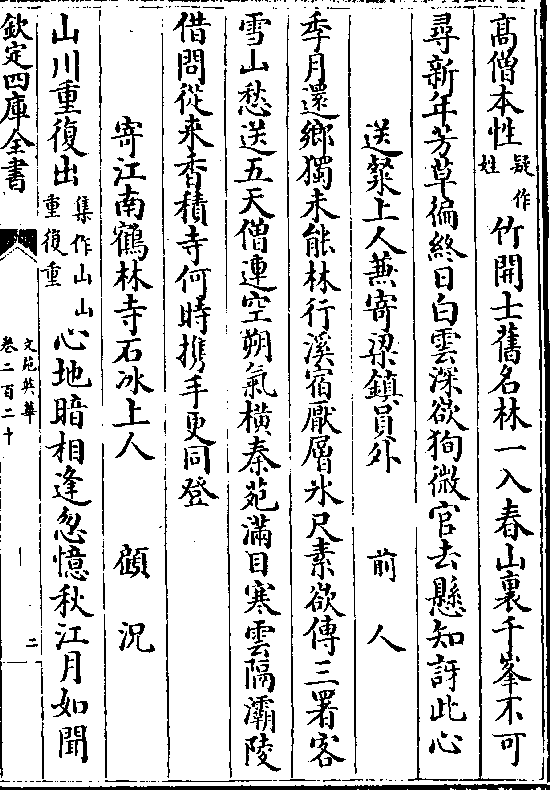 高僧本性疑作姓竹開士舊名林一入春山裏千峯不可
尋新年芳草徧終日白雲深欲狥微官去懸知訝此心
送粲上人蕪寄梁鎮員外 前人
季月還鄉獨未能林行溪宿厭層氷尺素欲傳三署客
雪山愁送五天僧連空朔氣橫秦苑滿目寒雲隔灞陵
借問從來香積寺何時攜手更同登
寄江南鶴林寺石冰上人 顧況
山川重復出集作山山重復重心地暗相逢忽憶秋江月如聞
欽定四庫全書
文苑英華
卷二百二十
二